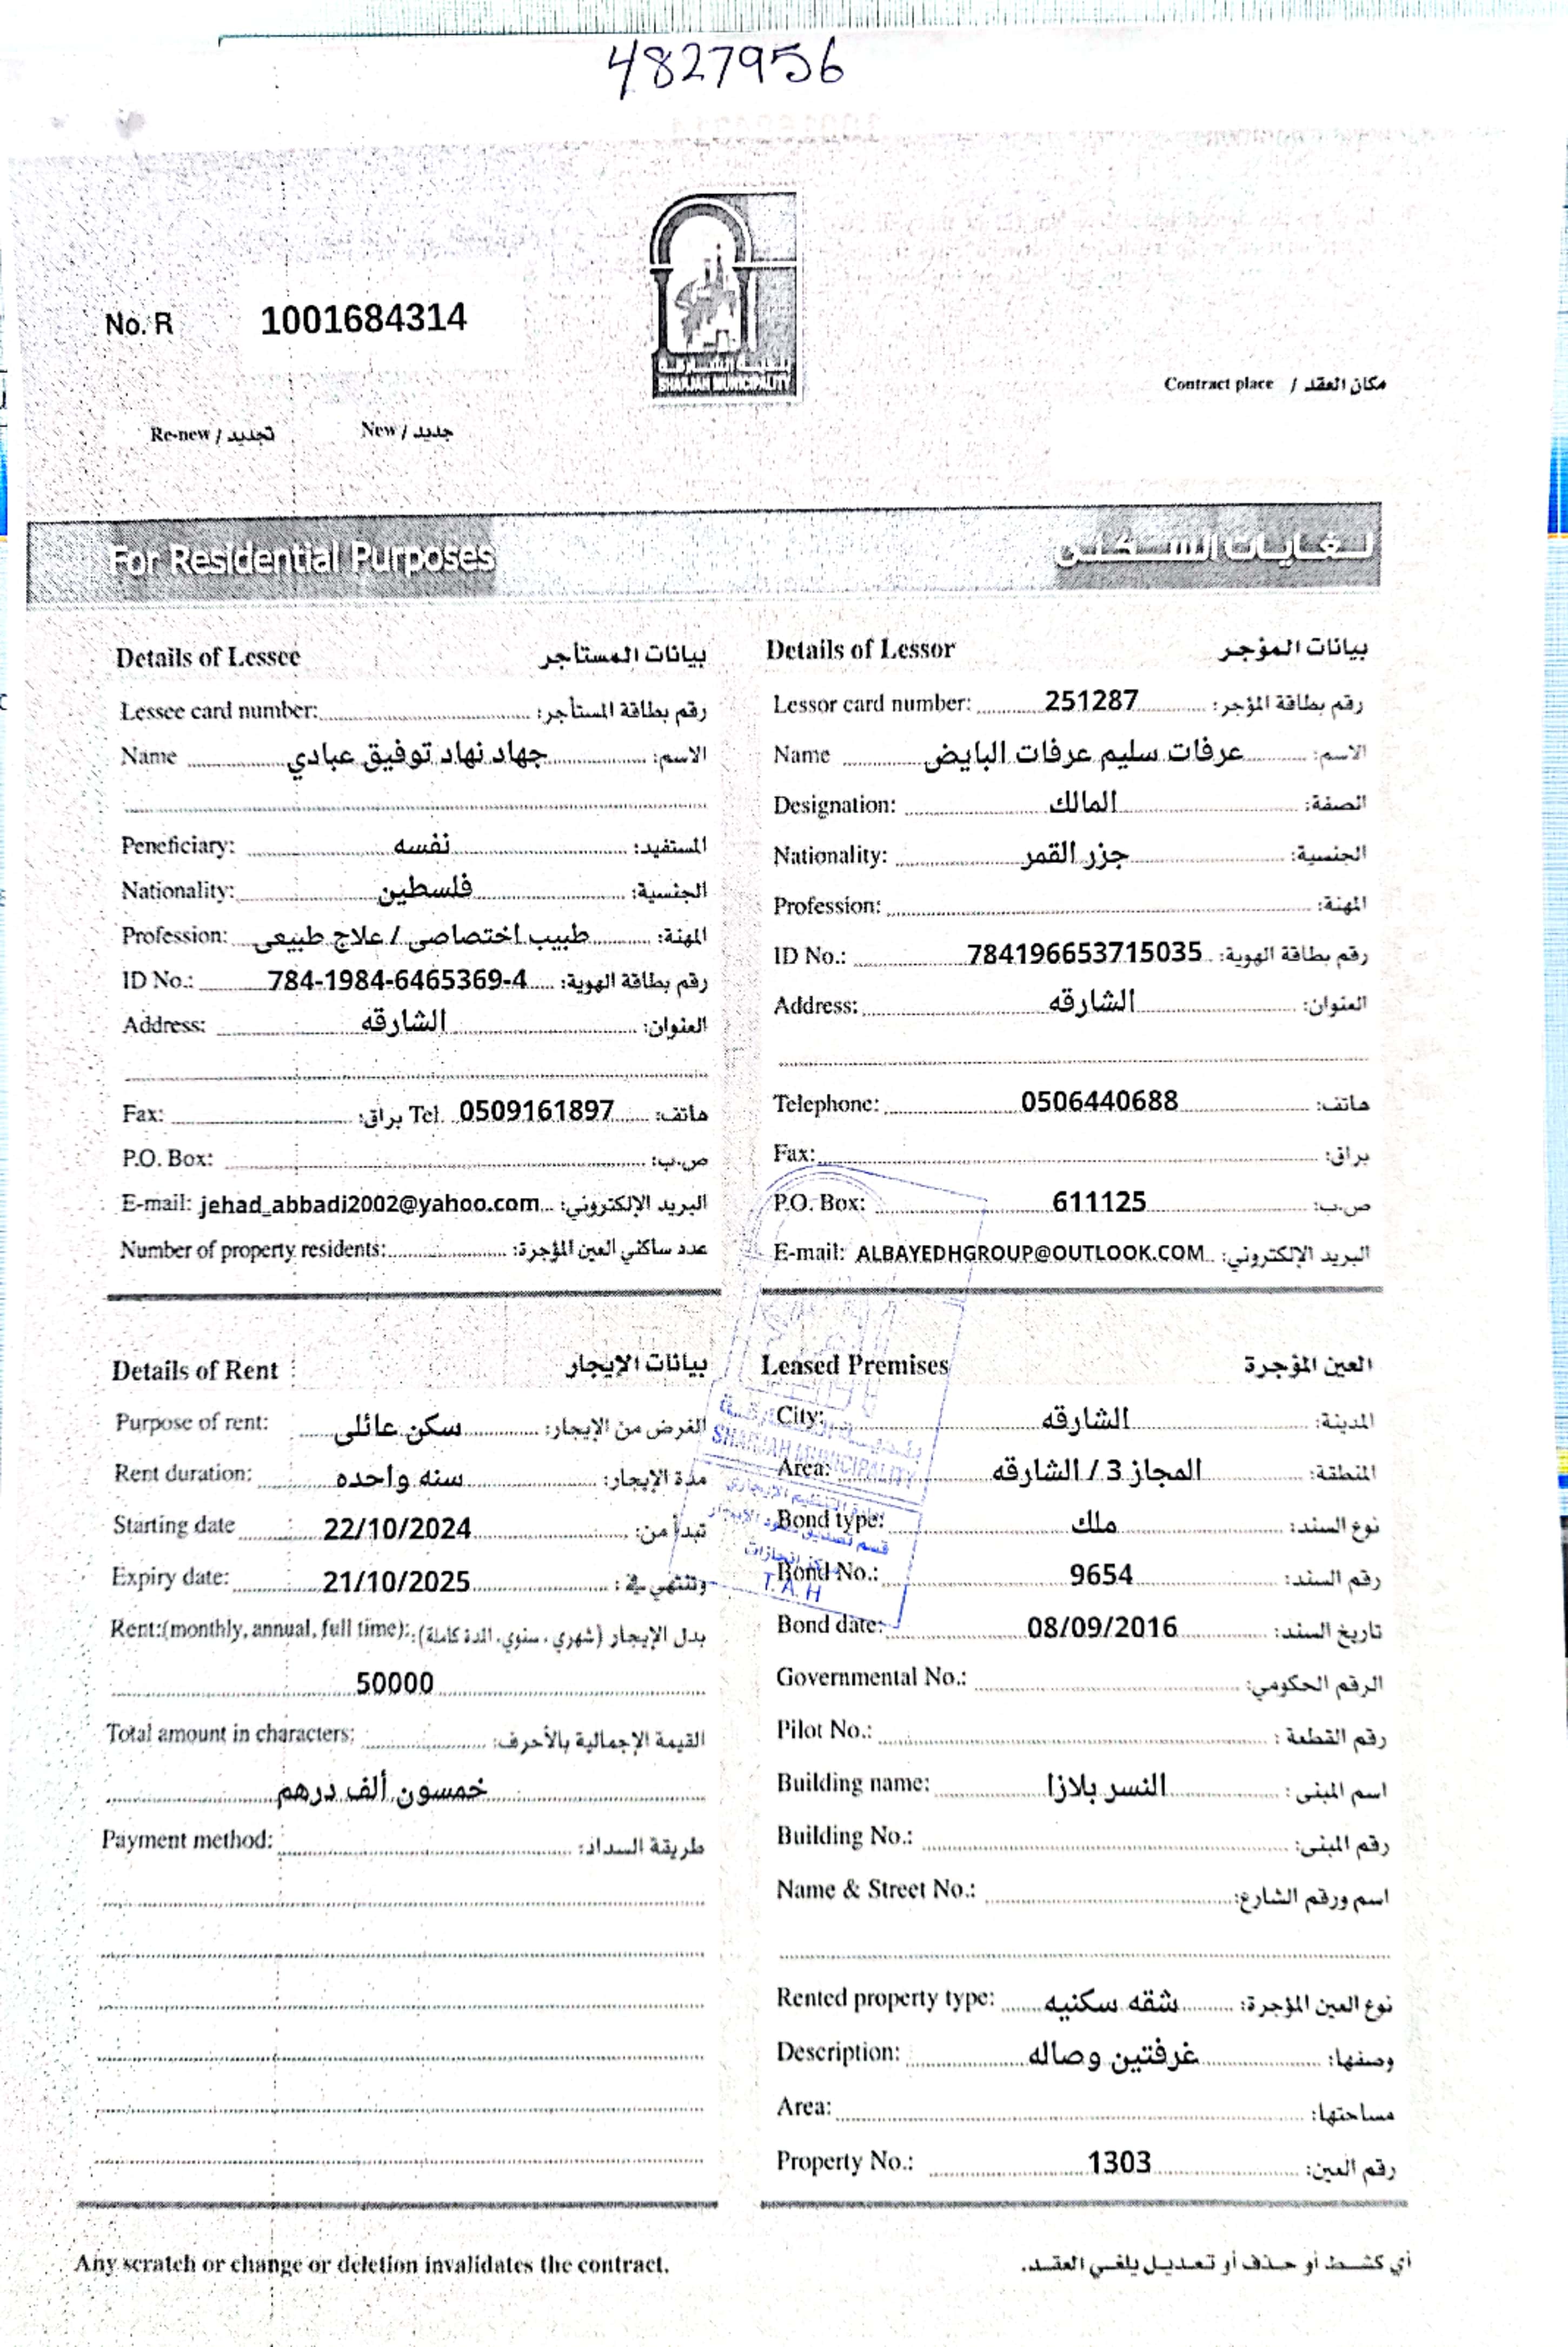 4827956
No. R 1001684314
بلدية الشارقة
SHARJAH MUNICIPALITY
Contract place / مكان العقد
Re-new / تجديد New / جديد
For Residential Purposes لغايات السكن
Details of Lessee بيانات المستأجر
Lessee card number: رقم بطاقة المستأجر:
Name جهاد نهاد توفيق عبادي الاسم:
Peneficiary: نفسه المستفيد:
Nationality: فلسطين الجنسية:
Profession: طبيب اختصاصى / علاج طبيعى المهنة:
ID No.: 784-1984-6465369-4 رقم بطاقة الهوية:
Address: الشارقه العنوان:
Fax: براق: Tel. 0509161897 هاتف:
P.O. Box: ص.ب:
E-mail: jehad_abbadi2002@yahoo.com البريد الإلكتروني:
Number of property residents: عدد ساكني العين المؤجرة:
Details of Lessor بيانات المؤجر
Lessor card number: 251287 رقم بطاقة المؤجر:
Name عرفات سليم عرفات البايض الاسم:
Designation: المالك الصفة:
Nationality: جزر القمر الجنسية:
Profession: المهنة:
ID No.: 784196653715035 رقم بطاقة الهوية:
Address: الشارقه العنوان:
Telephone: 0506440688 هاتف:
Fax: براق:
P.O. Box: 611125 ص.ب:
E-mail: ALBAYEDHGROUP@OUTLOOK.COM البريد الإلكتروني:
Details of Rent بيانات الإيجار
Purpose of rent: سكن عائلى الغرض من الإيجار:
Rent duration: سنه واحده مدة الإيجار:
Starting date 22/10/2024 تبدأ من:
Expiry date: 21/10/2025 وتنتهي في :
Rent:(monthly, annual, full time): بدل الإيجار (شهري، سنوي، المدة كاملة):
50000
Total amount in characters: القيمة الإجمالية بالأحرف:
خمسون ألف درهم
Payment method: طريقة السداد:
Leased Premises العين المؤجرة
City: الشارقه المدينة:
Area: المجاز 3 / الشارقه المنطقة:
Bond type: ملك نوع السند:
Bond No.: 9654 رقم السند:
Bond date: 08/09/2016 تاريخ السند:
Governmental No.: الرقم الحكومي:
Pilot No.: رقم القطعة :
Building name: النسر بلازا اسم المبنى :
Building No.: رقم المبنى:
Name & Street No.: اسم ورقم الشارع:
Rented property type: شقه سكنيه نوع العين المؤجرة:
Description: غرفتين وصاله وصفها:
Area: مساحتها:
Property No.: 1303 رقم العين:
SHARJAH MUNICIPALITY
T.A.H
Any scratch or change or deletion invalidates the contract. أي كشط أو حذف أو تعديل يلغي العقد.